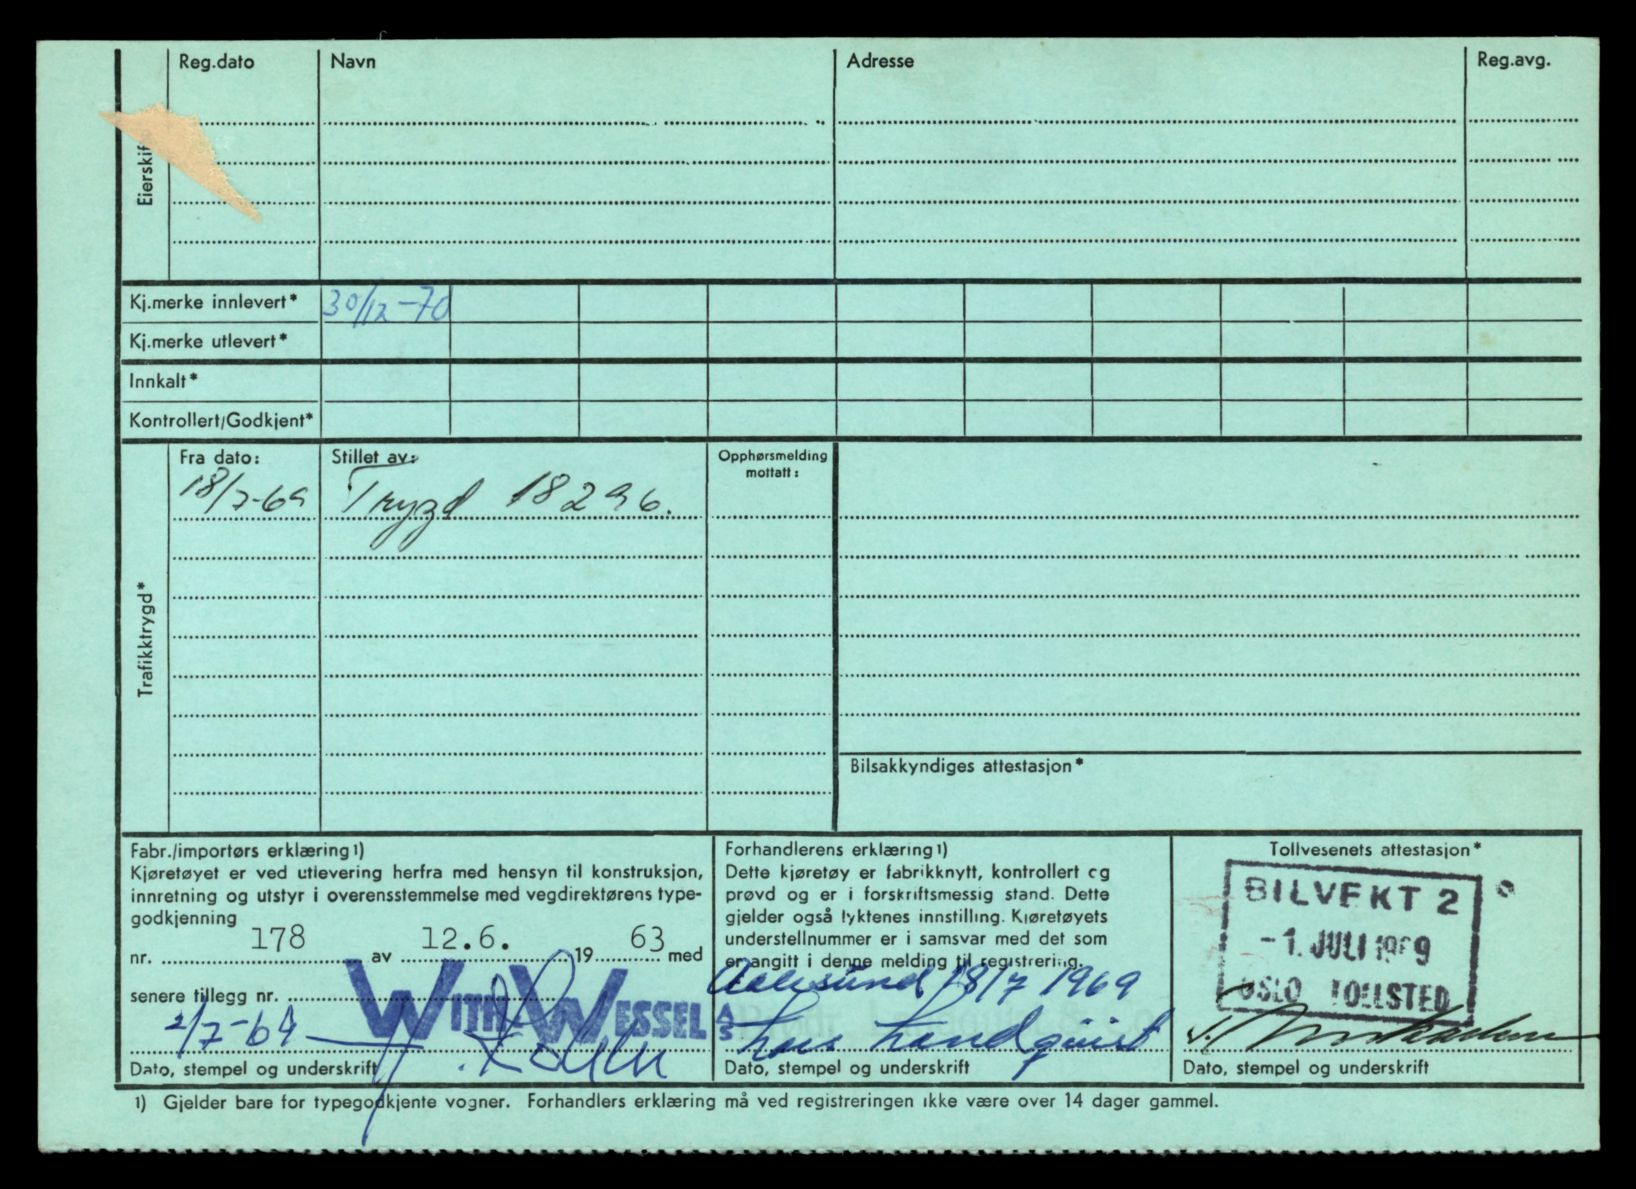 Reg.dato Navn Adresse Reg.avg.
Kj.merke innlevert* 30/12-70
Kj.merke utlevert*
Innkalt*
Kontrollert/Godkjent*
Trafikktrygd*
Fra dato: Stillet av: Opphørsmelding mottatt:
18/7-69 Trygd 18296.
Bilsakkyndiges attestasjon*
Fabr./importørs erklæring 1)
Kjøretøyet er ved utlevering herfra med hensyn til konstruksjon,
innretning og utstyr i overensstemmelse med vegdirektørens type-
godkjenning
nr. 178 av 12.6. 1963 med
senere tillegg nr.
2/7-69
WITH & WESSEL A/S
Dato, stempel og underskrift
Forhandlerens erklæring 1)
Dette kjøretøy er fabrikknytt, kontrollert og
prøvd og er i forskriftsmessig stand. Dette
gjelder også lyktenes innstilling. Kjøretøyets
understellnummer er i samsvar med det som
er angitt i denne melding til registrering.
Aalesund, 18/7 1969
Lars Landquist
Dato, stempel og underskrift
Tollvesenets attestasjon*
BILVEKT 2
-1. JULI 1969
OSLO TOLLSTED
Dato, stempel og underskrift
1) Gjelder bare for typegodkjente vogner. Forhandlers erklæring må ved registreringen ikke være over 14 dager gammel.